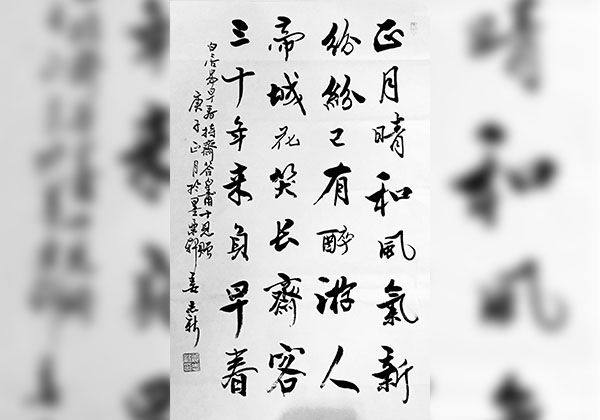 正月晴和風氣新
紛紛已有醉游人
帝城花笑长齋客
三十年来負早春
白居易早春持齋答皇甫十見贈
庚子正月於墨 姜志新